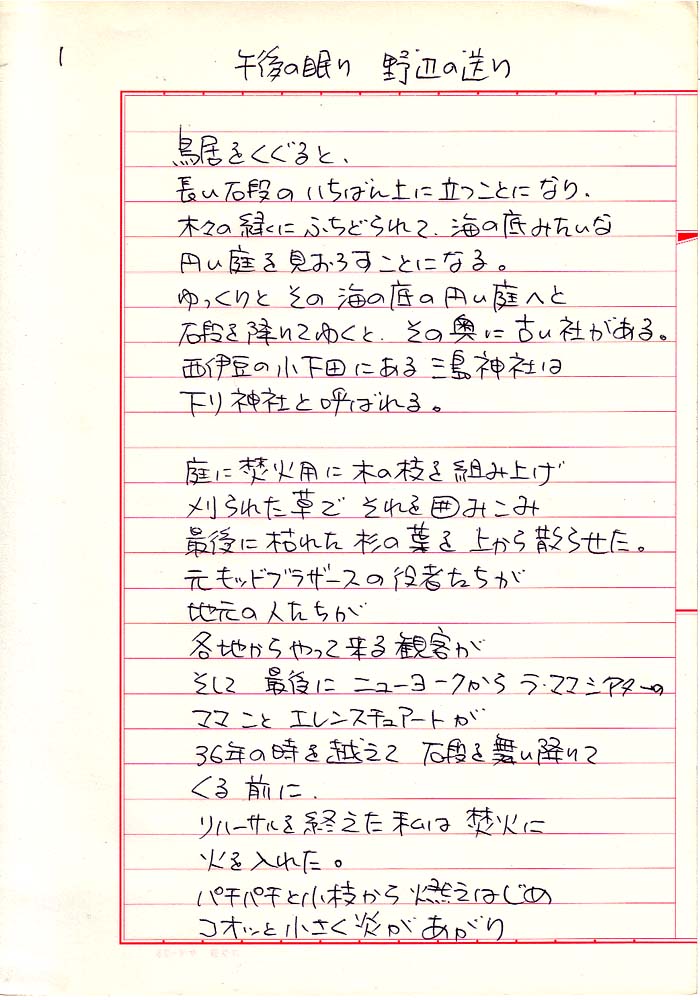 1
午後の眠り 野辺の送り
鳥居をくぐると、
長い石段のいちばん上に立つことになり、
木々の緑にふちどられて、海の底みたいな
円い庭を見おろすことになる。
ゆっくりと その海の底の円い庭へと
石段を降りてゆくと、その奥に古い社がある。
西伊豆の小下田にある三島神社は
下り神社と呼ばれる。
庭に焚火用に木の枝を組み上げ
刈られた草で それを囲みこみ
最後に枯れた杉の葉を上から散らせた。
元モッドブラザースの役者たちが
地元の人たちが
各地からやって来る観客が
そして 最後に ニューヨークから ラ・ママシアターの
ママこと エレンスチュアートが
36年の時を越えて 石段を舞い降りて
くる前に、
リハーサルを終えた私は 焚火に
火を入れた。
パチパチと小枝から燃えはじめ
コオッと小さく炎があがり